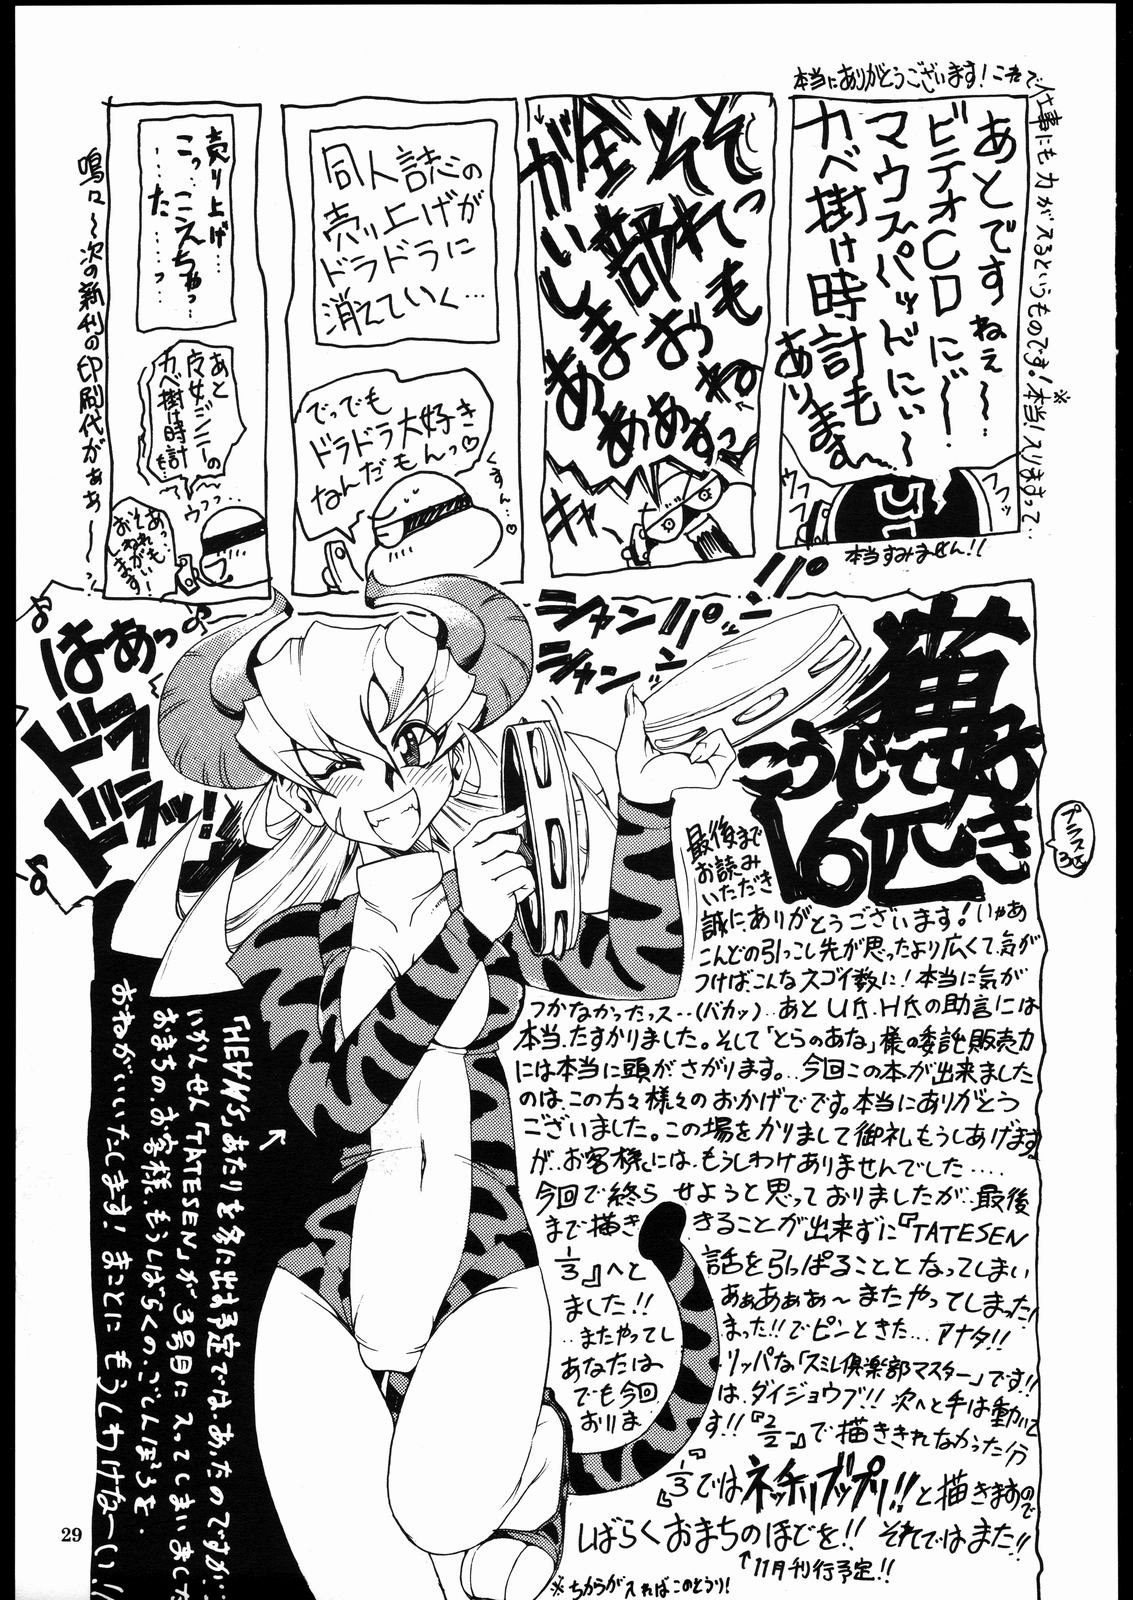 本当にありがとうございます！これで仕事にも力が入るというものです！本当！入りまくって‥
あとですねぇ〜
ビデオCDにぃ〜
マウスパッドにぃ〜
カベ掛け時計も
ありますー
ウフフ
フッフッ
本当すみません！！
それっも
全部おねが
いしまああすっ
キャー
同人誌の
売り上げが
ドラドラに
消えていく…
でっでも
ドラドラ大好き
なんだもんっ♡
くすん‥♡
売り上げ…
こっ…こえちゃっ…
………た………っ
あと
魔女ジニーの
カベ掛け時計も
ウフっ‥
あっ‥
それも
おねがい
します！
嗚々〜次の新刊の印刷代がぁぁ〜〜っ
はあっ♪
ドラ
ドラッ！！
シャンシャン
パンパン
猫好き
こうじて
16匹
プラス3匹
最後まで
お読み
いただき
誠にありがとうございます！いやあ
こんどの引っこし先が思ったより広くて、気が
つけばこんなスゴイ数に！本当に気が
つかなかったっス‥(バカッ)‥あとU氏、H氏の助言には
本当、たすかりました。そして「とらのあな」様の委託販売力
には本当に頭がさがります。‥今回この本が出来ました
のは、この方々様々のおかげでです。本当にありがとう
ございました。この場をかりまして御礼もうしあげます。
が、お客様には、もうしわけありませんでした‥‥
今回で終らせようと思っておりましたが、最後
まで描ききることが出来ずに『TATESEN
1/3』へと話を引っぱることとなってしまい
ました！！ああああぁ〜またやってしまった！
‥またやってしまった！！でピンときた…アナタ！！
あなたはリッパな「スミレ倶楽部マスター」です！！
でも今回は、ダイジョウブ！！次へと手は動いて
おります！！『2/2』で描ききれなかった分
『1/3』では ネッチリブップリ！！と描きますので
しばらくおまちのほどを！！ それではまた！！
↑11月刊行予定！！
※ちからが入ればこのとうり！
「HEAVN'S」あたりを冬に出す予定では、あったのですが…
いかんせん「TATESEN」が3号目に入ってしまいました
おまちの、お客様、もうしばらくの、ごしんぼうを、
おねがいいたします！まことにもうしわけなーい！！
29